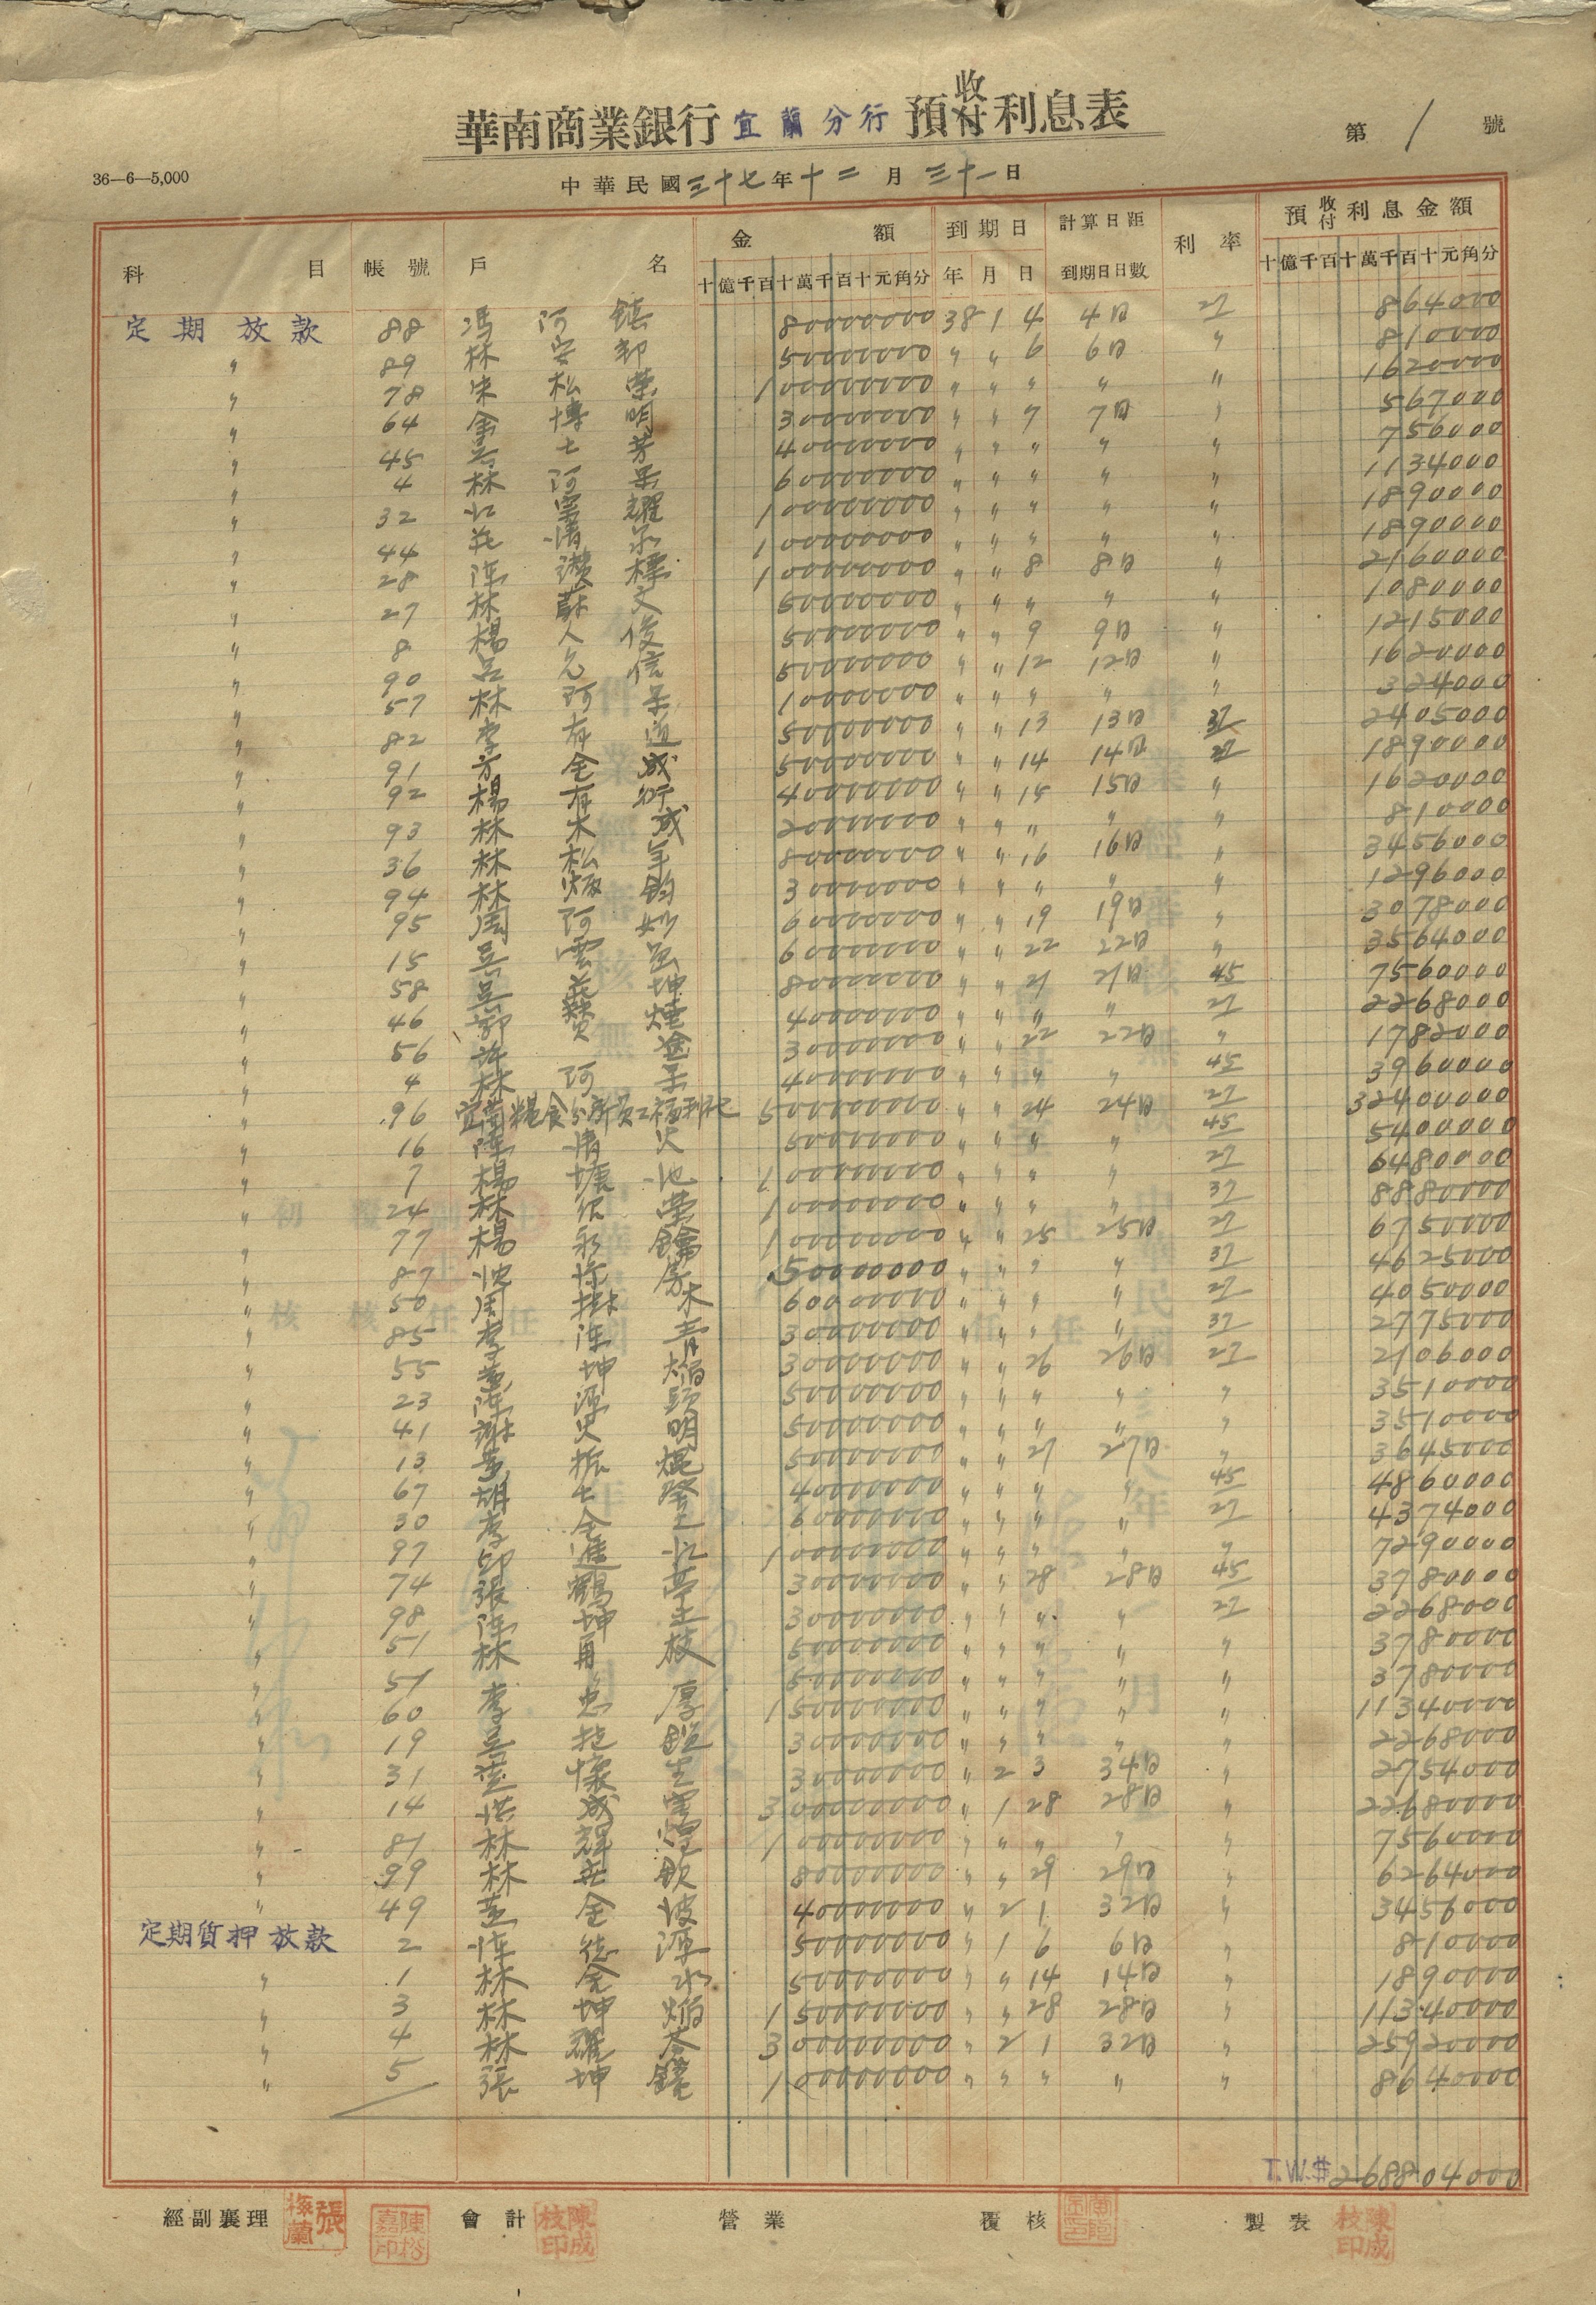 華南商業銀行 宜蘭分行 預收付利息表
第 1 號
36—6—5,000
中華民國三十七年十二月三十一日
科目 帳號 戶名 金額 到期日 計算日距 利率 預收付利息金額
十億千百十萬千百十元角分 年 月 日 到期日日數 十億千百十萬千百十元角分
定期放款 88 馮阿 800000000 38 1 4 4日 27 864000
〃 89 林安邦 500000000 〃 〃 6 6日 〃 810000
〃 78 宋松榮 1000000000 〃 〃 〃 〃 〃 1620000
〃 64 金博明 300000000 〃 〃 7 7日 〃 567000
〃 45 七芳 400000000 〃 〃 〃 〃 〃 756000
〃 4 林阿呆 600000000 〃 〃 〃 〃 〃 1134000
〃 32 江耀 1000000000 〃 〃 〃 〃 〃 1890000
〃 44 莊清泉 1000000000 〃 〃 〃 〃 〃 1890000
〃 28 陳讚標 1000000000 〃 〃 8 8日 〃 2160000
〃 27 林蘇文 500000000 〃 〃 〃 〃 〃 1080000
〃 8 楊人俊 500000000 〃 〃 9 9日 〃 1215000
〃 90 呂允信 500000000 〃 〃 12 12日 〃 1620000
〃 57 林阿呆 100000000 〃 〃 〃 〃 〃 324000
〃 82 李存道 500000000 〃 〃 13 13日 37 2405000
〃 91 方金成 500000000 〃 〃 14 14日 27 1890000
〃 92 楊有 400000000 〃 〃 15 15日 〃 1620000
〃 93 林木成 200000000 〃 〃 〃 〃 〃 810000
〃 36 林松年 800000000 〃 〃 16 16日 〃 3456000
〃 94 林鈞 300000000 〃 〃 〃 〃 〃 1296000
〃 95 周阿妙 600000000 〃 〃 19 19日 〃 3078000
〃 15 吳雲 600000000 〃 〃 22 22日 〃 3564000
〃 58 吳坤 800000000 〃 〃 21 21日 45 7560000
〃 46 郭贊煙 400000000 〃 〃 〃 〃 27 2268000
〃 56 許途 300000000 〃 〃 22 22日 〃 1782000
〃 4 林阿呆 400000000 〃 〃 〃 〃 45 3960000
〃 96 宜蘭糧食分所員工福利社 5000000000 〃 〃 24 24日 27 32400000
〃 16 陳清火 500000000 〃 〃 〃 〃 45 5400000
〃 7 楊塘池 1000000000 〃 〃 〃 〃 27 6480000
〃 24 林榮 1000000000 〃 〃 〃 〃 37 8880000
〃 77 楊永鑰 1000000000 〃 〃 25 25日 27 6750000
〃 87 沈 500000000 〃 〃 〃 〃 37 4625000
〃 50 周樹木 600000000 〃 〃 〃 〃 27 4050000
〃 85 李陳青 300000000 〃 〃 〃 〃 37 2775000
〃 55 坤焰 300000000 〃 〃 26 26日 27 2106000
〃 23 陳源頭 500000000 〃 〃 〃 〃 〃 3510000
〃 41 謝火明 500000000 〃 〃 〃 〃 〃 3510000
〃 13 振焜 500000000 〃 〃 27 27日 〃 3645000
〃 67 胡七 400000000 〃 〃 〃 〃 45 4860000
〃 30 李全 600000000 〃 〃 〃 〃 27 4374000
〃 97 邱進江 1000000000 〃 〃 〃 〃 〃 7290000
〃 74 張鶴亭 300000000 〃 〃 28 28日 45 3780000
〃 98 陳坤土 300000000 〃 〃 〃 〃 27 2268000
〃 51 林再枝 500000000 〃 〃 〃 〃 〃 3780000
〃 51 500000000 〃 〃 〃 〃 〃 3780000
〃 60 李忠厚 1500000000 〃 〃 〃 〃 〃 11340000
〃 19 吳 300000000 〃 〃 〃 〃 〃 2268000
〃 31 懷 300000000 〃 2 3 34日 〃 2754000
〃 14 洪成 3000000000 〃 1 28 28日 〃 22680000
〃 81 林輝煌 1000000000 〃 〃 〃 〃 〃 7560000
〃 99 林欽 800000000 〃 〃 29 29日 〃 6264000
〃 49 金波 400000000 〃 2 1 32日 〃 3456000
定期質押放款 2 陳德源 500000000 〃 1 6 6日 〃 810000
〃 1 林全水 500000000 〃 〃 14 14日 〃 1890000
〃 3 林坤焰 1500000000 〃 〃 28 28日 〃 11340000
〃 4 林耀 3000000000 〃 2 1 32日 〃 25920000
〃 5 張坤鐘 1000000000 〃 〃 〃 〃 〃 8640000
T.W.$ 268804000
經副襄理 張梅蘭 陳松嘉印 會計 陳成枝印 營業 覆核 製表 陳成枝印